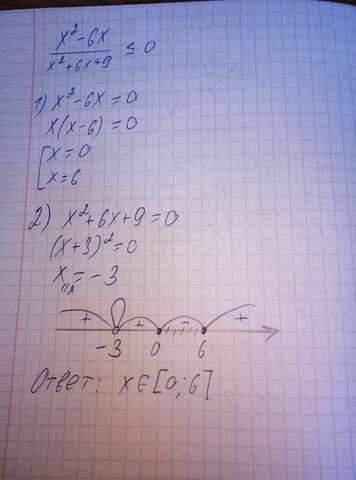 x²-6x
x²+6x+9 ≤ 0
1) x²-6x=0
x(x-6)=0
[x=0
x=6
2) x²+6x+9=0
(x+3)²=0
x₁,₂=-3
+ + - +
-3 0 6
Ответ: x∈[0;6]